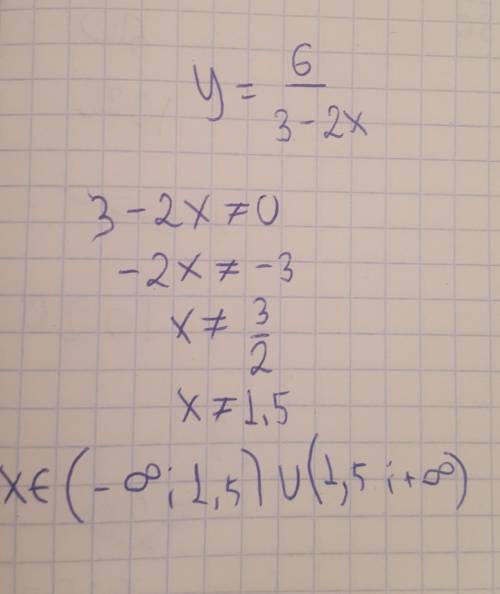 y = 6/(3 - 2x)
3 - 2x ≠ 0
-2x ≠ -3
x ≠ 3/2
x ≠ 1,5
x ∈ (-∞; 1,5) ∪ (1,5; +∞)